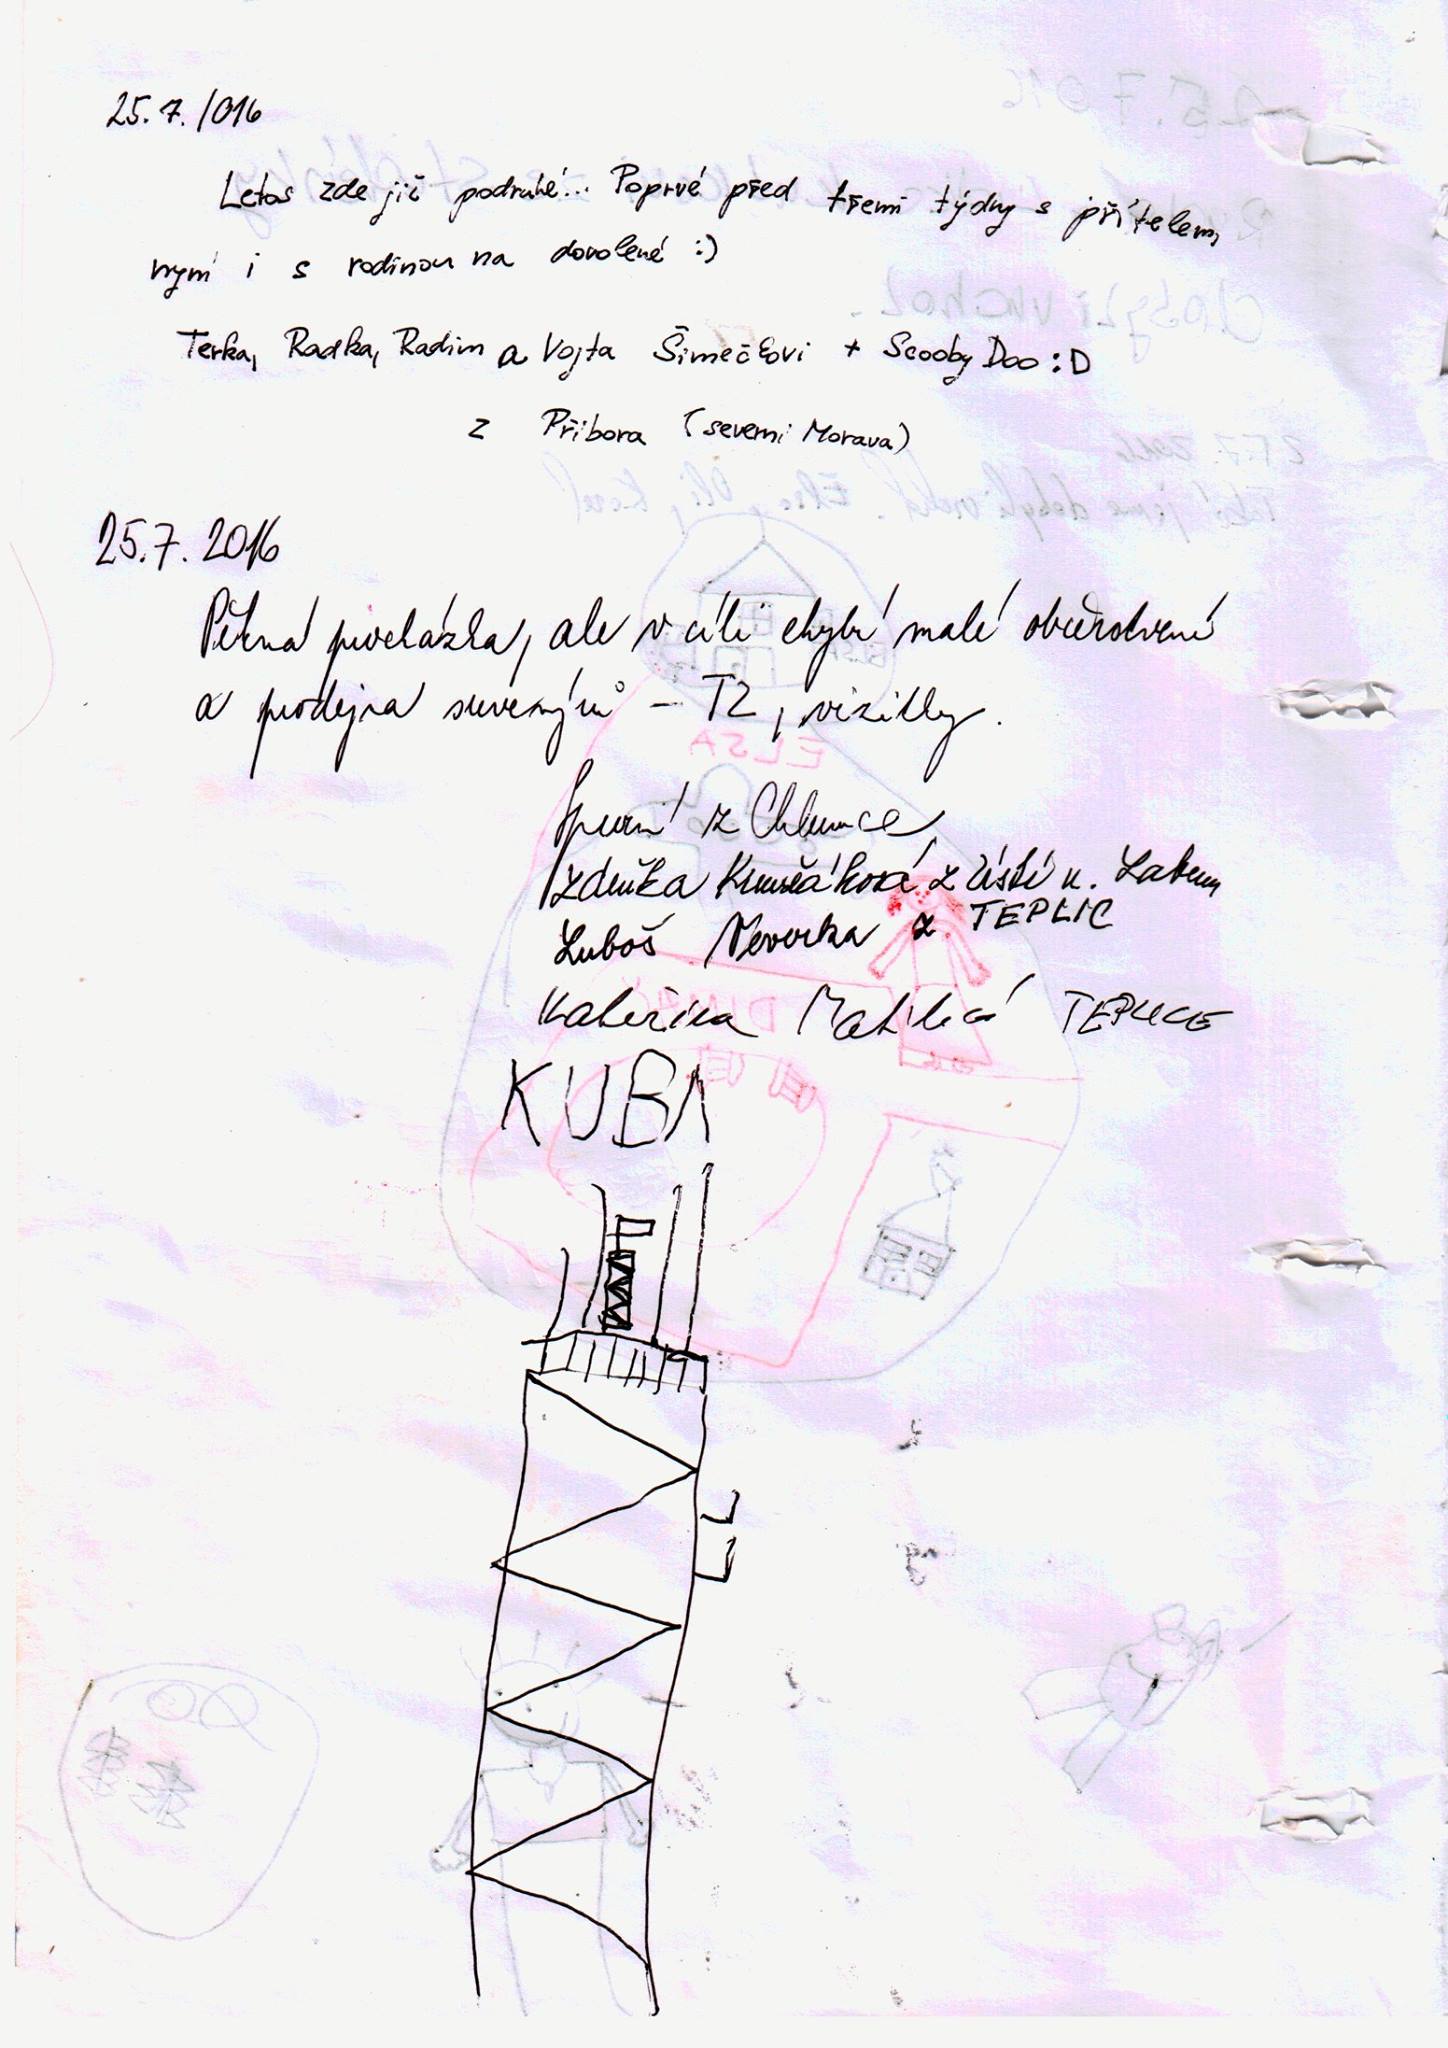 25.7./016
Letos zde již podruhé... Poprvé před třemi týdny s přítelem,
nyní i s rodinou na dovolené :)
Terka, Radka, Radim a Vojta Šimečkovi + Scooby Doo :D
z Příbora (severní Morava)
25.7. 2016
Pěkná procházka, ale v cíli chybí malé občerstvení
a prodejna suvenýrů – TZ, vizitky.
Spurní z Chlumce
Zdeňka z Ústí n. Labem
Luboš Nevorka z TEPLIC
Kateřina TEPLICE
KUBA